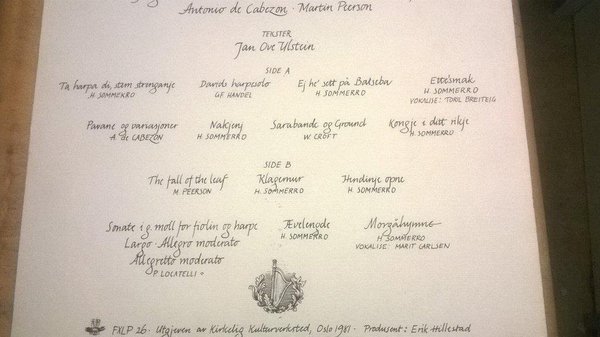 Antonio de Cabezon · Martin Peerson
TEKSTER
Jan Ove Ulstein
SIDE A
Ta harpa di, stem strengane Davids harpesolo Ej he' sett på Batseba Ettesmak
H. SOMMERRO G.F. HANDEL H. SOMMERRO H. SOMMERRO
VOKALISE: TORIL BREITEIG
Pavane og variasjoner Nakjenj Sarabande og Ground Kongje i ditt rikje
A. de CABEZON H. SOMMERRO W. CROFT H. SOMMERRO
SIDE B
The fall of the leaf Klagemur Hendinje opne
M. PEERSON H. SOMMERRO H. SOMMERRO
Sonate i g. moll for fiolin og harpe Ævelengde Morgåhymne
Largo · Allegro moderato H. SOMMERRO H. SOMMERRO
Allegretto moderato VOKALISE: MARIT CARLSEN
P. LOCATELLI
FXLP 26 · Utgjeven av Kirkelig Kulturverksted, Oslo 1981 · Produsent: Erik Hillestad